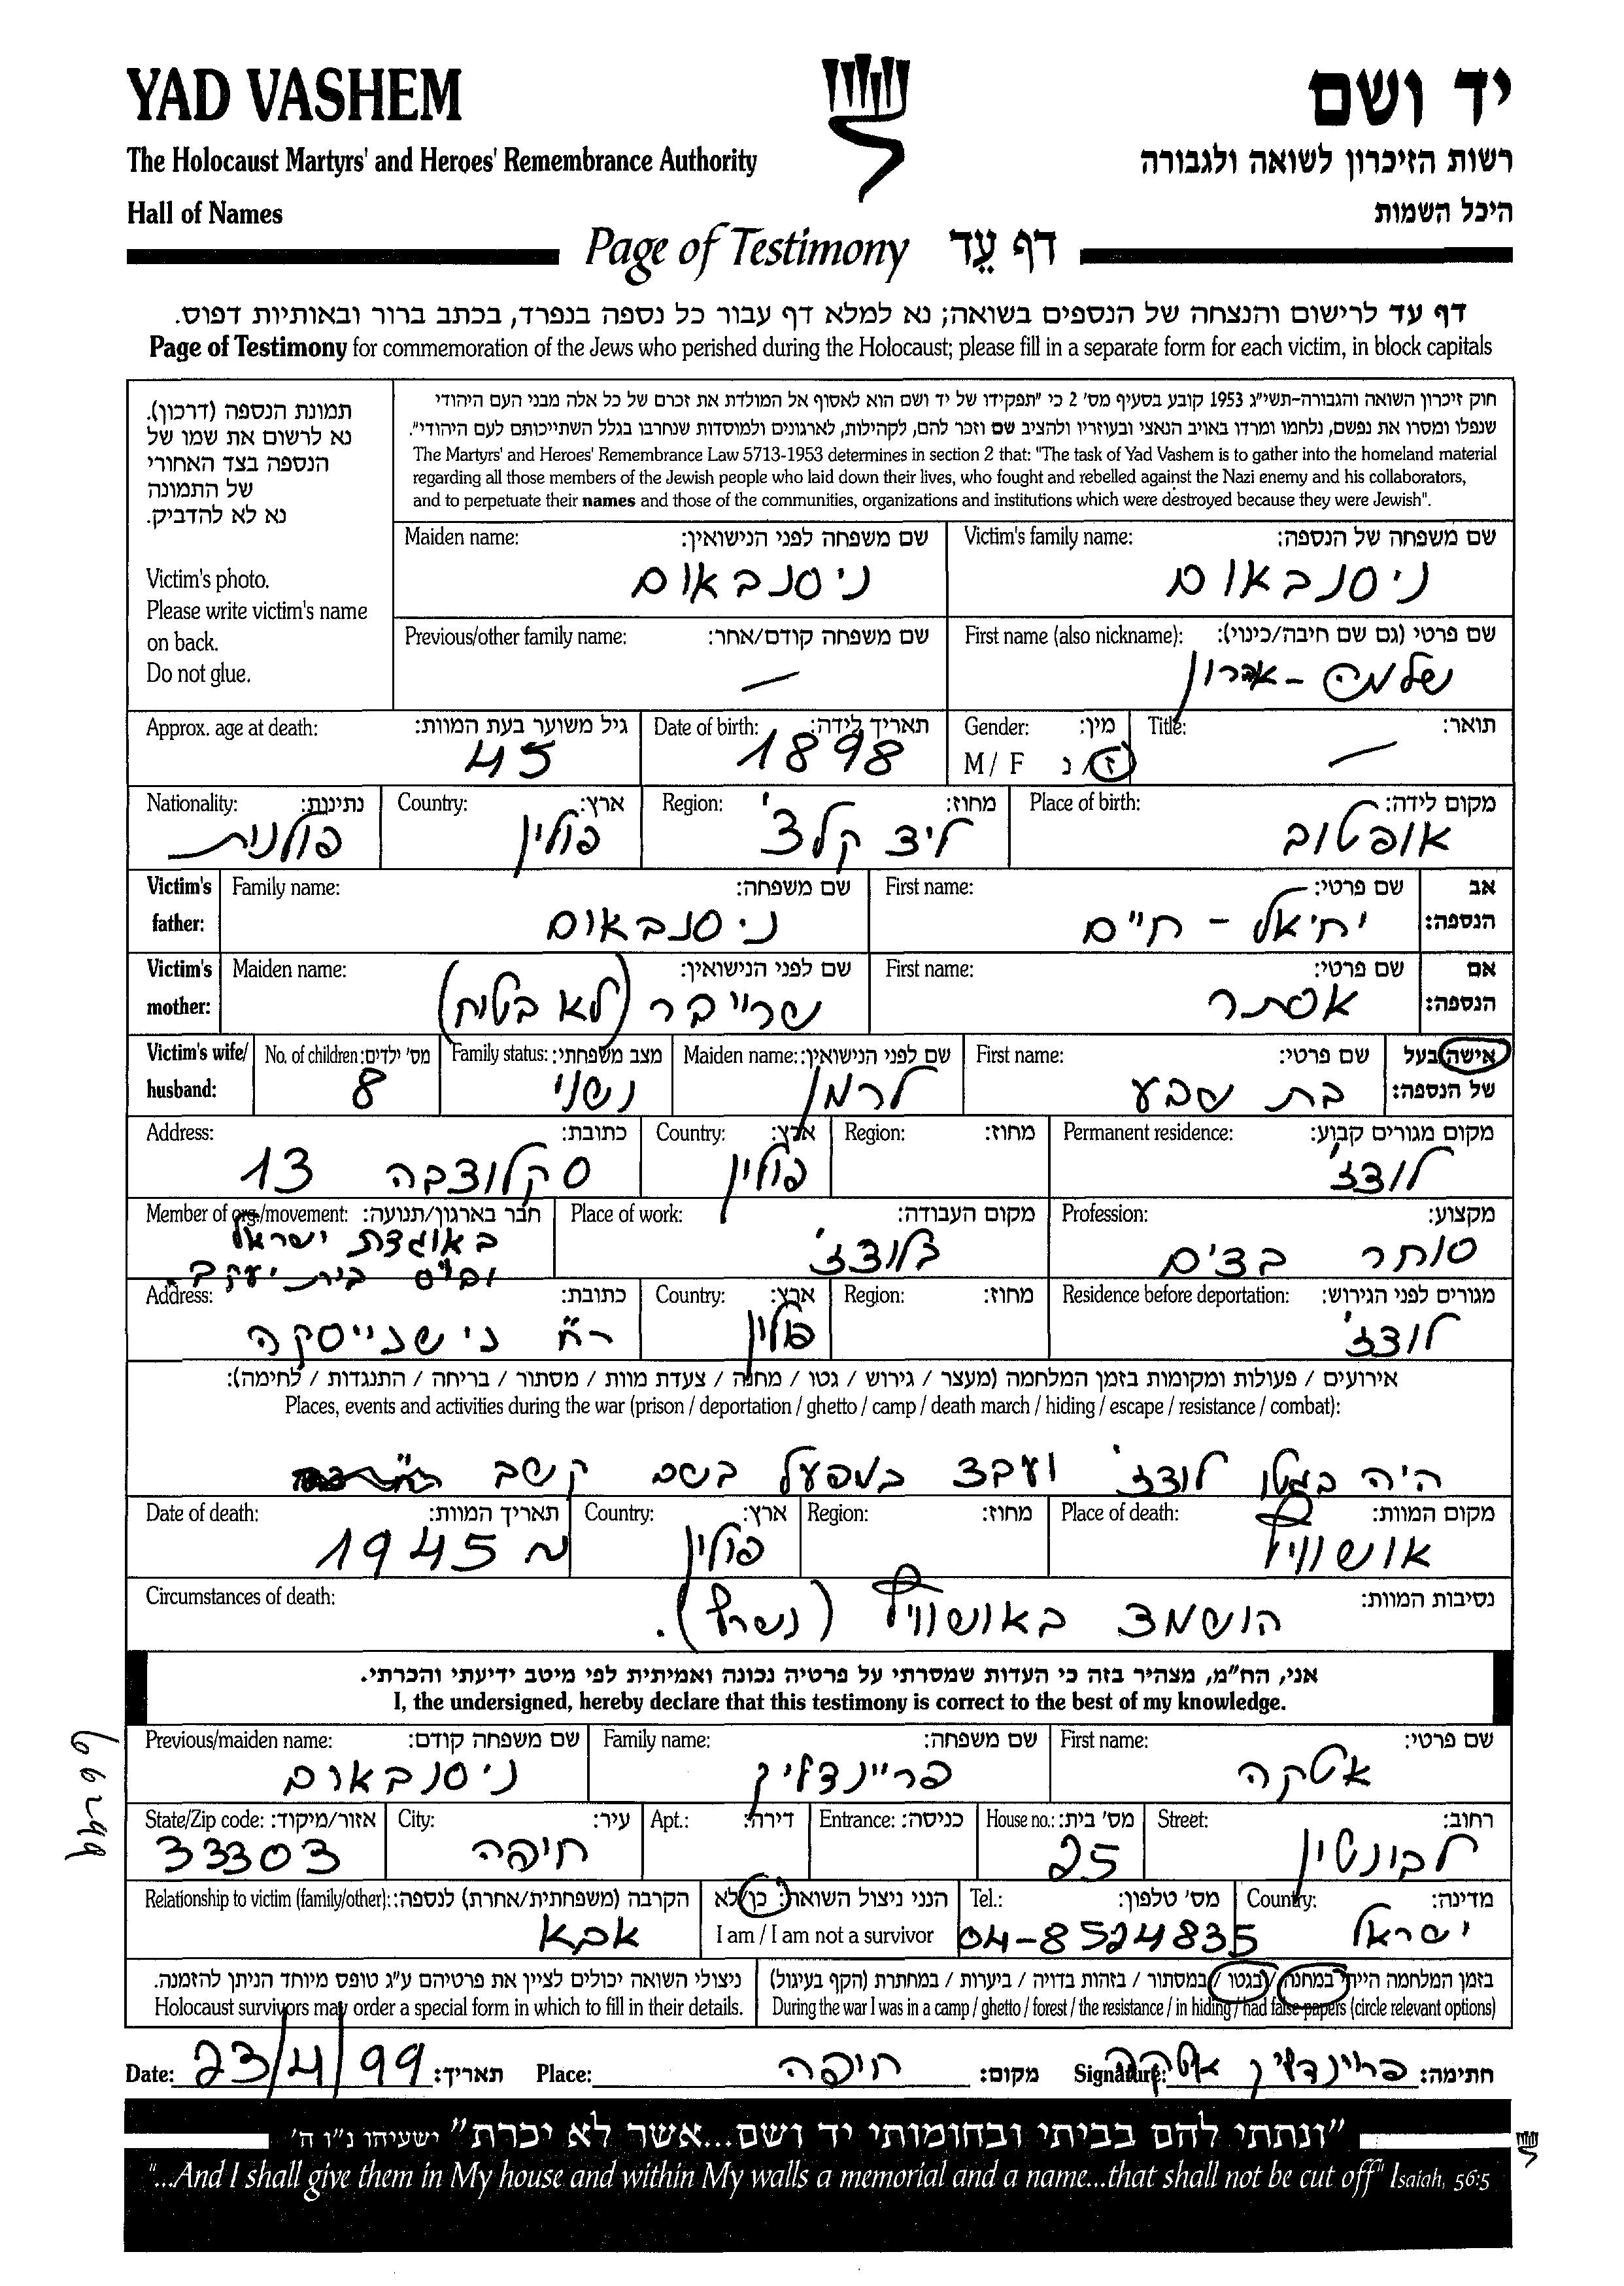 YAD VASHEM
יד ושם
The Holocaust Martyrs' and Heroes' Remembrance Authority
רשות הזיכרון לשואה ולגבורה
Hall of Names
היכל השמות
Page of Testimony דף עֵד
דף עד לרישום והנצחה של הנספים בשואה; נא למלא דף עבור כל נספה בנפרד, בכתב ברור ובאותיות דפוס.
Page of Testimony for commemoration of the Jews who perished during the Holocaust; please fill in a separate form for each victim, in block capitals
תמונת הנספה (דרכון).
נא לרשום את שמו של
הנספה בצד האחורי
של התמונה
נא לא להדביק.
Victim's photo.
Please write victim's name
on back.
Do not glue.
חוק זיכרון השואה והגבורה-תשי"ג 1953 קובע בסעיף מס' 2 כי "תפקידו של יד ושם הוא לאסוף אל המולדת את זכרם של כל אלה מבני העם היהודי
שנפלו ומסרו את נפשם, נלחמו ומרדו באויב הנאצי ובעוזריו ולהציב שם וזכר להם, לקהילות, לארגונים ולמוסדות שנחרבו בגלל השתייכותם לעם היהודי".
The Martyrs' and Heroes' Remembrance Law 5713-1953 determines in section 2 that: "The task of Yad Vashem is to gather into the homeland material
regarding all those members of the Jewish people who laid down their lives, who fought and rebelled against the Nazi enemy and his collaborators,
and to perpetuate their names and those of the communities, organizations and institutions which were destroyed because they were Jewish".
Victim's family name: שם משפחה של הנספה:
ניסנבאום
Maiden name: שם משפחה לפני הנישואין:
ניסנבאום
First name (also nickname): שם פרטי (גם שם חיבה/כינוי):
שלמה - אהרון
Previous/other family name: שם משפחה קודם/אחר:
—
Title: תואר:
—
Gender: מין:
M / F ז / נ
Date of birth: תאריך לידה:
1898
Approx. age at death: גיל משוער בעת המוות:
45
Place of birth: מקום לידה:
אופטוב
Region: מחוז:
ליד קלצ'
Country: ארץ:
פולין
Nationality: נתינות:
פולנית
Victim's father: אב הנספה:
First name: שם פרטי:
יחיאל - חיים
Family name: שם משפחה:
ניסנבאום
Victim's mother: אם הנספה:
First name: שם פרטי:
אסתר
Maiden name: שם לפני הנישואין:
שרייבר (לא בטוח)
Victim's wife/ husband: אישה/בעל של הנספה:
First name: שם פרטי:
בת שבע
Maiden name: שם לפני הנישואין:
לרמן
Family status: מצב משפחתי:
נשוי
No. of children: מס' ילדים:
8
Permanent residence: מקום מגורים קבוע:
לודז'
Region: מחוז:
Country: ארץ:
פולין
Address: כתובת:
סקלודבה 13
Profession: מקצוע:
סוחר בדים
Place of work: מקום העבודה:
בלודז'
Member of org./movement: חבר בארגון/תנועה:
באגודת ישראל
וב"ס בית יעקב
Residence before deportation: מגורים לפני הגירוש:
לודז'
Region: מחוז:
Country: ארץ:
פולין
Address: כתובת:
רח' נישנייסקה
אירועים / פעולות ומקומות בזמן המלחמה (מעצר / גירוש / גטו / מחנה / צעדת מוות / מסתור / בריחה / התנגדות / לחימה):
Places, events and activities during the war (prison / deportation / ghetto / camp / death march / hiding / escape / resistance / combat):
היה בגטו לודז' ועבד במפעל בשם קשב
Place of death: מקום המוות:
אושוויץ
Region: מחוז:
Country: ארץ:
פולין
Date of death: תאריך המוות:
~ 1945
Circumstances of death: נסיבות המוות:
הושמד באושוויץ (נשרף).
אני, הח"מ, מצהיר בזה כי העדות שמסרתי על פרטיה נכונה ואמיתית לפי מיטב ידיעתי והכרתי.
I, the undersigned, hereby declare that this testimony is correct to the best of my knowledge.
First name: שם פרטי:
אטקה
Family name: שם משפחה:
פריינדליך
Previous/maiden name: שם משפחה קודם:
ניסנבאום
Street: רחוב:
לבונטין
House no.: מס' בית:
25
Entrance: כניסה:
Apt.: דירה:
City: עיר:
חיפה
State/Zip code: אזור/מיקוד:
33303
Country: מדינה:
ישראל
Tel.: מס' טלפון:
04-8524835
הנני ניצול השואה: כן/לא
I am / I am not a survivor
Relationship to victim (family/other): הקרבה (משפחתית/אחרת) לנספה:
אבא
בזמן המלחמה הייתי במחנה / בגטו / במסתור / בזהות בדויה / ביערות / במחתרת (הקף בעיגול)
During the war I was in a camp / ghetto / forest / the resistance / in hiding / had false papers (circle relevant options)
ניצולי השואה יכולים לציין את פרטיהם ע"ג טופס מיוחד הניתן להזמנה.
Holocaust survivors may order a special form in which to fill in their details.
Date: 23/4/99 תאריך: Place: חיפה מקום: Signature: פריינדליך אטקה חתימה:
"ונתתי להם בביתי ובחומותי יד ושם...אשר לא יכרת" ישעיהו נ"ו ה'
"...And I shall give them in My house and within My walls a memorial and a name...that shall not be cut off" Isaiah, 56:5